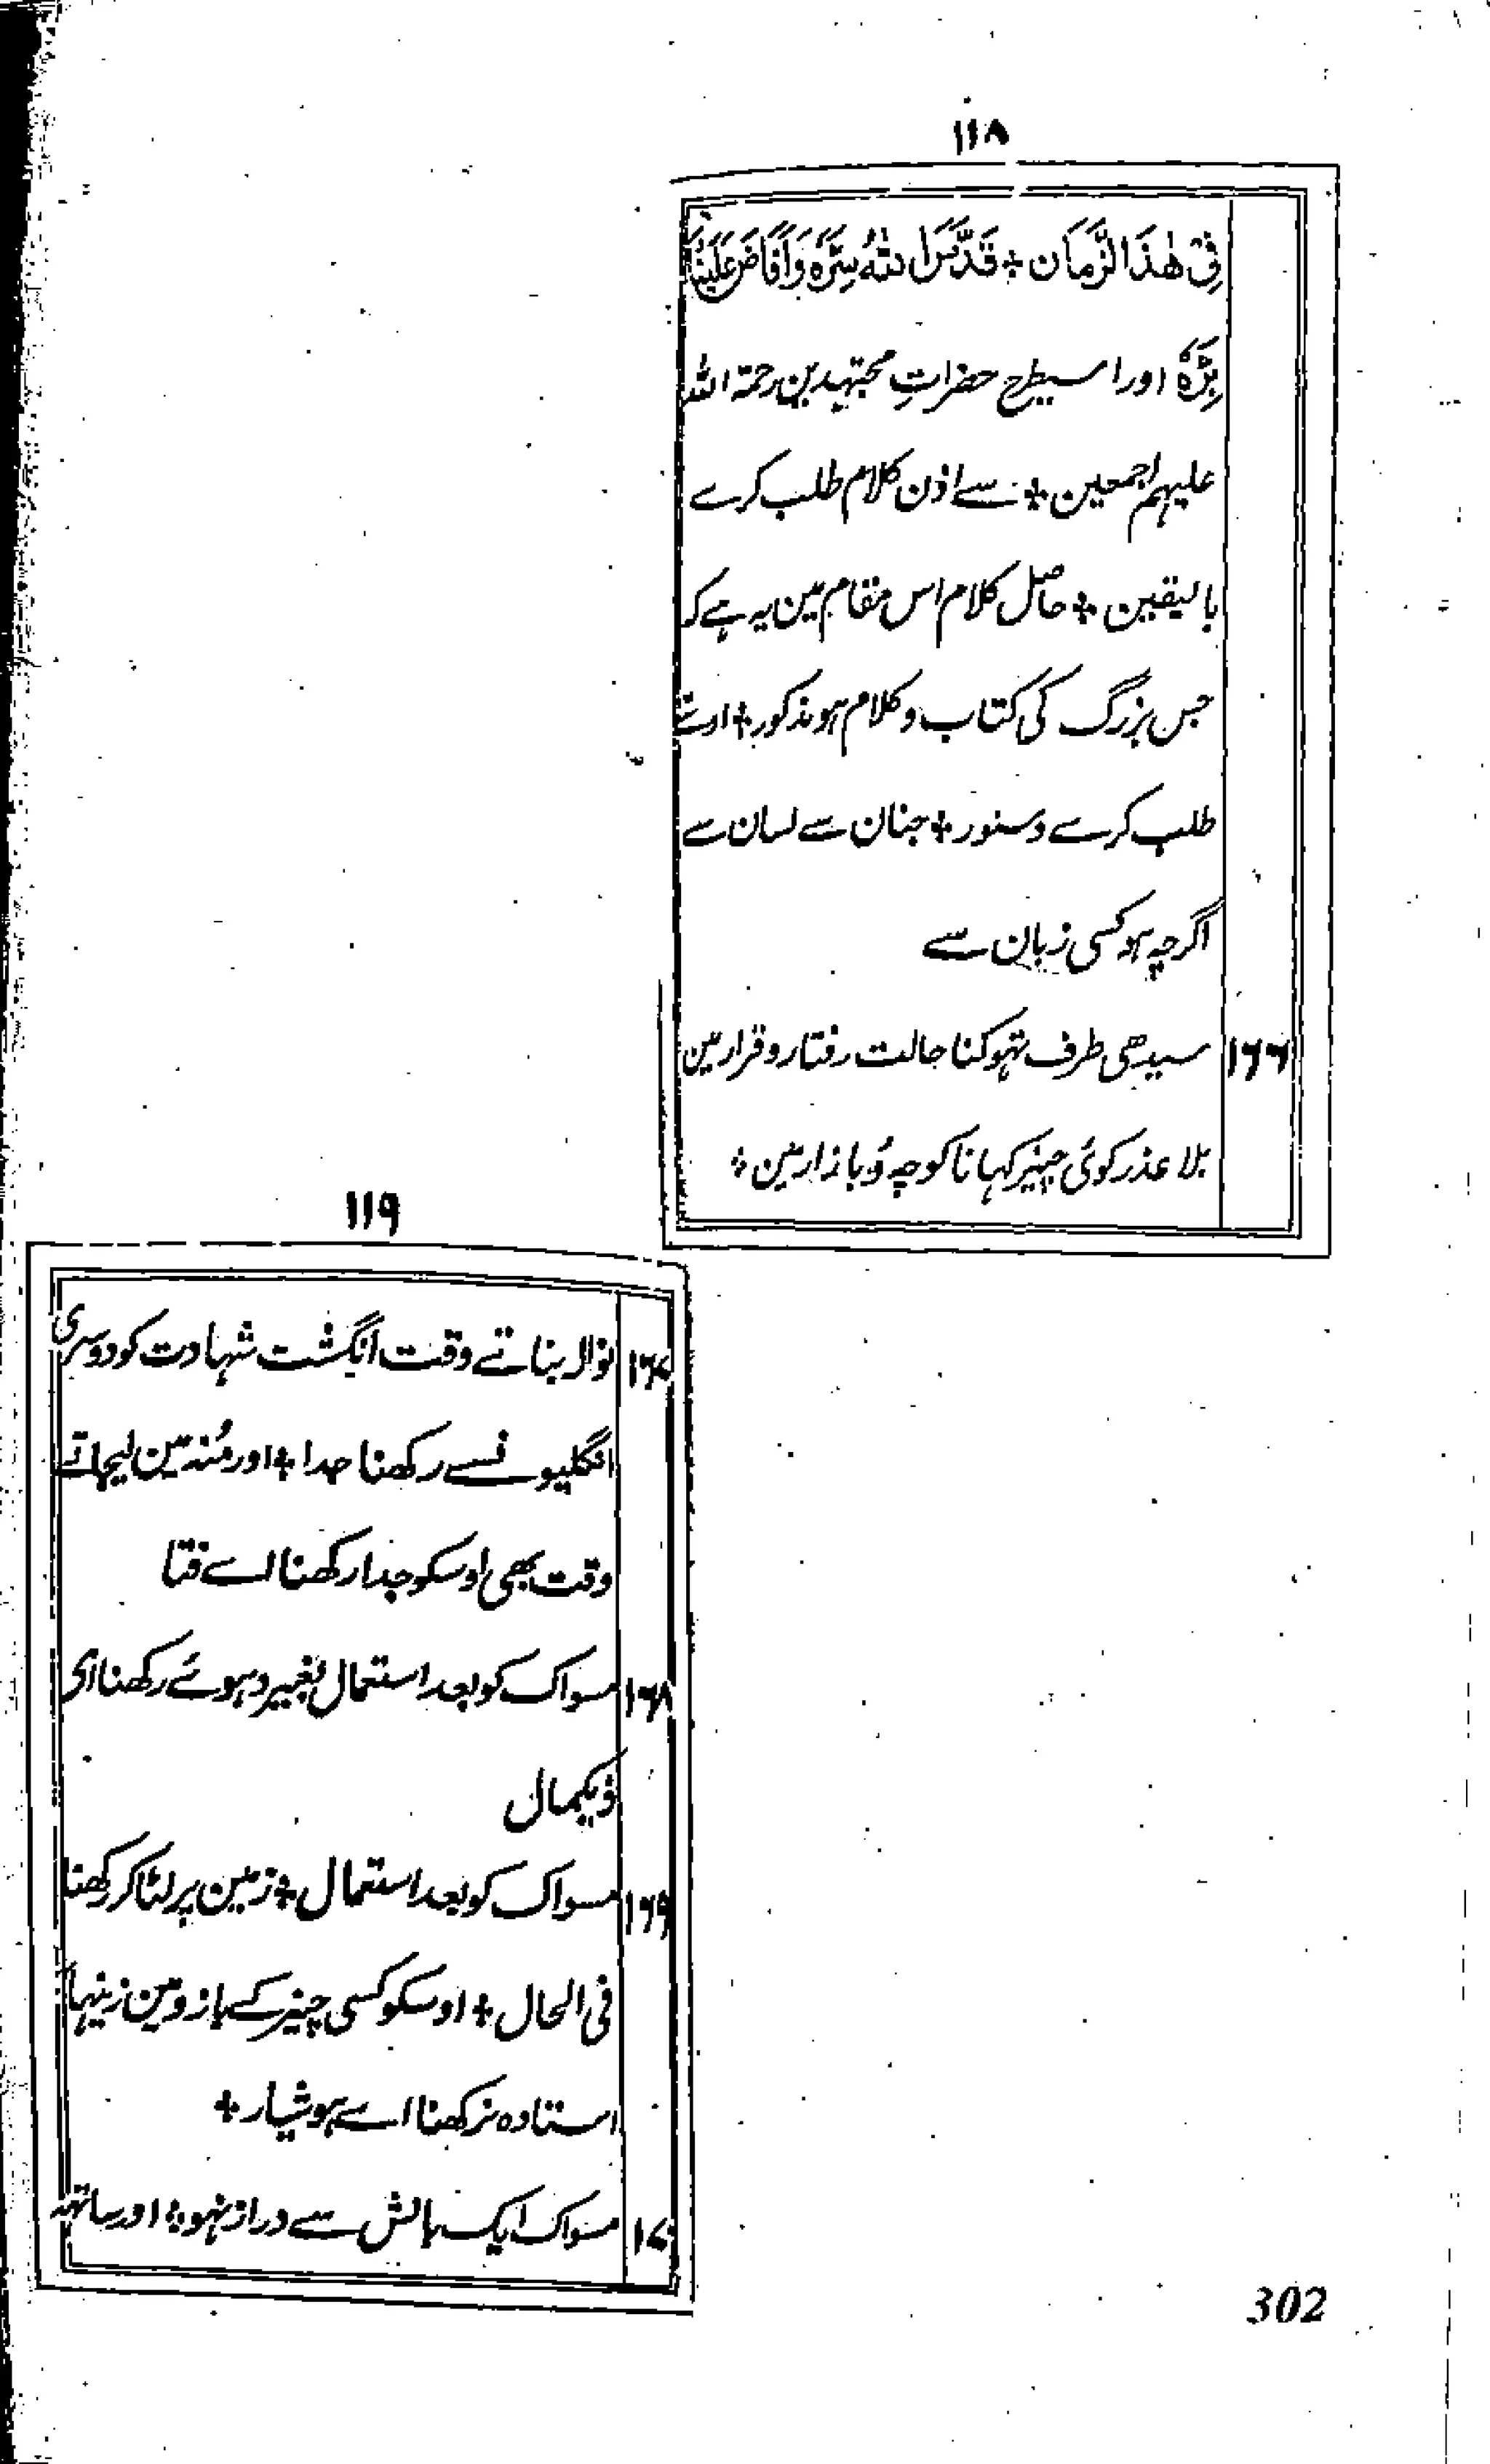 ۱۱۸
فِیْ ھٰذَا الزَّمَان + قَدَّسَ اللہُ سِرَّہٗ وَاَفَاضَ عَلَیْنَا
بِرَّہٗ اور اسیطرح حضراتِ مجتہدین رحمۃ اللہ
علیہم اجمعین + سے اذن کلام طلب کرے
بالیقین + حاصل کلام اس مقام مین یہ ہے کہ
جس بزرگ کی کتاب و کلام ہو مذکور + اوسے
طلب کرے دستور + جنان سے لسان سے
اگرچہ ہو کسی زبان سے
۱۶۶ سیدھی طرف تہوکنا حالت رفتار و قرار مین
بلا عذر کوئی چیز کہانا کوچہ و بازار مین +
۱۱۹
۱۶۷ نوالا بناتے وقت انگشت شہادت کو دوسری
انگلیونسے رکھنا جدا + اور مُنہ مین لیجاتے
وقت بھی اوسکو جدا رکھنا اے فتا
۱۶۸ مسواک کو بعد استعمال بغیر دہوئے رکھنا ای
ذیکمال
۱۶۹ مسواک کو بعد استعمال + زمین پر لٹا کر رکھنا
فی الحال + اوسکو کسی چیز کے بازو مین زینہار
استادہ نرکھنا اے ہوشیار +
۱۷۰ مسواک ایک بالش سے دراز نہو + اور ساتھہ
302